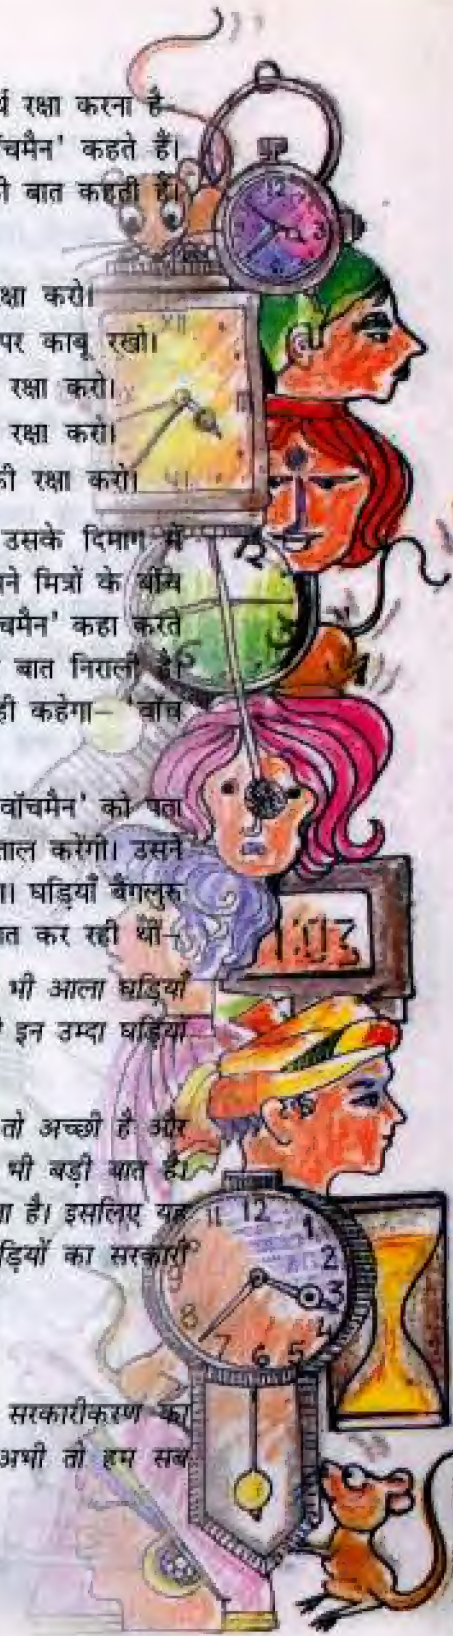 र्थ रक्षा करना है–
चमैन' कहते हैं।
ी बात कहती हैं।
क्षा करो।
पर काबू रखो।
रक्षा करो।
रक्षा करो।
की रक्षा करो।
उसके दिमाग में
ने मित्रों के बीच
चमैन' कहा करते
बात निराली है।
ही कहेगा– 'वॉच
वॉचमैन' को पता
ताल करेंगी। उसने
ा। घड़ियाँ बैंगलुरु
त कर रही थीं–
भी आला घड़ियाँ
ी इन उम्दा घड़ियों
तो अच्छी है और
भी बड़ी बात है।
ा है। इसलिए यह
ड़ियों का सरकारी
सरकारीकरण का
अभी तो हम सब
12
3
XII
III
VI
12
3
6
1:03
11 12 1
2
3
4
5
6
7
8
9